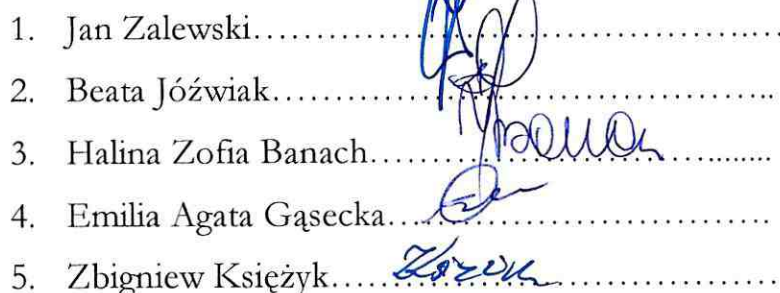 1. Jan Zalewski
2. Beata Jóźwiak
3. Halina Zofia Banach
4. Emilia Agata Gąsecka
5. Zbigniew Księżyk